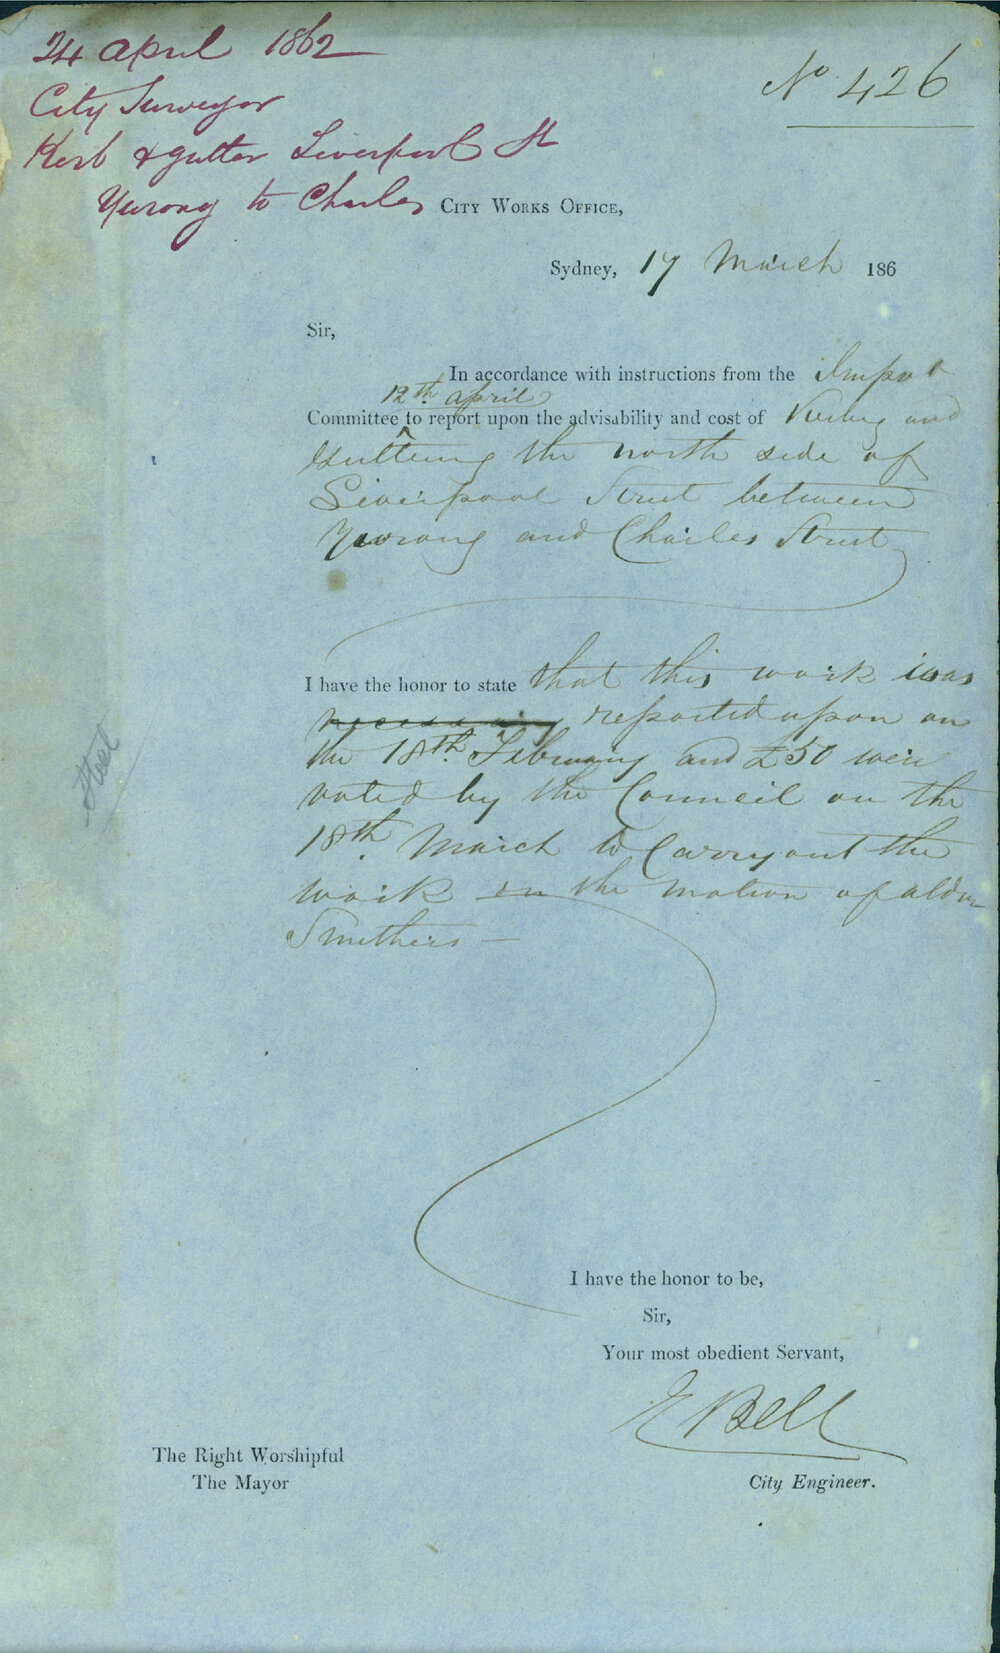 24 April 1862
City Surveyor
Kerb & gutter Liverpool St
Yurong to Charles
No 426
CITY WORKS OFFICE,
Sydney, 17 March 186
Sir,
In accordance with instructions from the Impt
12th April
Committee ^ to report upon the advisability and cost of Kerbing and
Guttering the north side of
Liverpool Street between
Yurong and Charles Street
I have the honor to state that this work was
necessary reported upon on
the 18th February and £50 were
voted by the Council on the
18th March to Carry out the
work on the motion of aldn
Smithers —
I have the honor to be,
Sir,
Your most obedient Servant,
E Bell
City Engineer.
The Right Worshipful
The Mayor